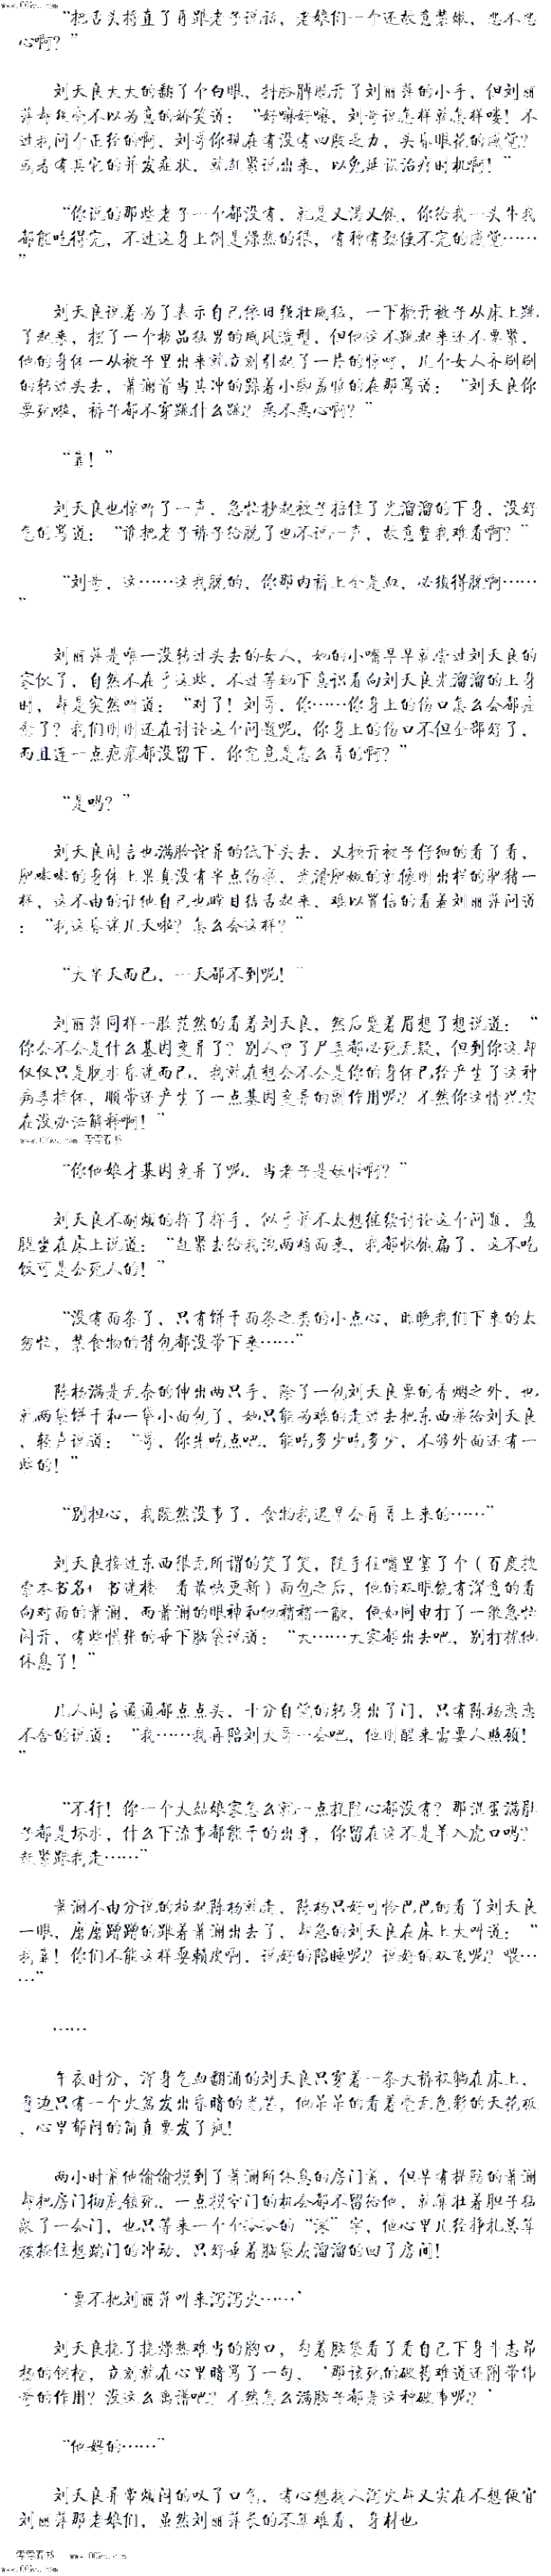 www.00ws.com 零零看书
“把舌头捋直了再跟老子说话，老娘们一个还故意装嫩，恶不恶
心啊？”
刘天良大大的翻了个白眼，抖胳膊甩开了刘丽萍的小手，但刘丽
萍却丝毫不以为意的娇笑道：“好嘛好嘛，刘哥说怎样就怎样喽！不
过我问个正经的啊，刘哥你现在有没有四肢乏力，头昏眼花的感觉？
或者有其它的并发症状，就赶紧说出来，以免延误治疗时机啊！”
“你说的那些老子一个都没有，就是又渴又饿，你给我一头牛我
都能吃得完，不过这身上倒是燥热的很，有种有劲使不完的感觉……
”
刘天良说着为了表示自己依旧强壮威猛，一下掀开被子从床上跳
了起来，摆了一个极品猛男的威风造型，但他这不跳起来还不要紧，
他的身体一从被子里出来就立刻引起了一片的惊呼，几个女人齐刷刷
的转过头去，萧澜首当其冲的跺着小脚羞恼的在那骂说：“刘天良你
要死啦，裤子都不穿跳什么跳？恶不恶心啊？”
“靠！”
刘天良也惊呼了一声，急忙抄起被子捂住了光溜溜的下身，没好
气的骂道：“谁把老子裤子给脱了也不说一声，故意整我难看啊？”
“刘哥，这……这我脱的，你那内裤上全是血，必须得脱啊……
”
刘丽萍是唯一没转过头去的女人，她的小嘴早早就尝过刘天良的
家伙了，自然不在乎这些，不过等她下意识看向刘天良光溜溜的上身
时，却是突然叫道：“对了！刘哥，你……你身上的伤口怎么会都痊
愈了？我们刚刚还在讨论这个问题呢，你身上的伤口不但全部好了，
而且连一点疤痕都没留下，你究竟是怎么弄的啊？”
“是吗？”
刘天良闻言也满脸诧异的低下头去，又掀开被子仔细的看了看，
肥咪咪的身体上果真没有半点伤痕，光滑肥嫩的就像刚出栏的肥猪一
样，这不由的让他自己也瞠目结舌起来，难以置信的看着刘丽萍问道
：“我这昏迷几天啦？怎么会这样？”
“大半天而已，一天都不到呢！”
刘丽萍同样一脸茫然的看着刘天良，然后蹙着眉想了想说道：“
你会不会是什么基因变异了？别人中了尸毒都必死无疑，但到你这却
仅仅只是脱水昏迷而已，我就在想会不会是你的身体已给产生了这种
病毒抗体，顺带还产生了一点基因变异的副作用呢？不然你这情况实
在没办法解释啊！”
www.00ws.com 零零看书
“你他娘才基因变异了呢，当老子是妖怪啊？”
刘天良不耐烦的挥了挥手，似乎并不太想继续讨论这个问题，盘
腿坐在床上说道：“赶紧去给我泡两桶面来，我都快饿扁了，这不吃
饭可是会死人的！”
“没有面条了，只有饼干面条之类的小点心，昨晚我们下来的太
匆忙，装食物的背包都没带下来……”
陈杨满是无奈的伸出两只手，除了一包刘天良要的香烟之外，也
就两袋饼干和一袋小面包了，她只能为难的走过去把东西递给刘天良
，轻声说道：“哥，你先吃点吧，能吃多少吃多少，不够外面还有一
些的！”
“别担心，我既然没事了，食物我迟早会再弄上来的……”
刘天良接过东西很无所谓的笑了笑，随手往嘴里塞了个（百度搜
索本书名+书迷楼　看最快更新）面包之后，他的双眼饶有深意的看
向对面的萧澜，而萧澜的眼神和他稍稍一触，便如同电打了一般急忙
闪开，有些慌张的垂下脑袋说道：“大……大家都出去吧，别打扰他
休息了！”
几人闻言通通都点点头，十分自觉的转身出了门，只有陈杨恋恋
不舍的说道：“我……我再陪刘大哥一会吧，他刚醒来需要人照顾！
”
“不行！你一个大姑娘家怎么就一点提防心都没有？那混蛋满肚
子都是坏水，什么下流事都能干的出来，你留在这不是羊入虎口吗？
赶紧跟我走……”
萧澜不由分说的拉起陈杨就走，陈杨只好可怜巴巴的看了刘天良
一眼，磨磨蹭蹭的跟着萧澜出去了，却急的刘天良在床上大叫道：“
我靠！你们不能这样耍赖皮啊，说好的陪睡呢？说好的双飞呢？喂…
…”
……
午夜时分，浑身气血翻涌的刘天良只穿着一条大裤衩躺在床上，
身边只有一个火盆发出昏暗的光芒，他呆呆的看着毫无色彩的天花板
，心里郁闷的简直要发了疯！
两小时前他偷偷摸到了萧澜所休息的房门前，但早有提防的萧澜
却把房门彻底锁死，一点摸空门的机会都不留给他，就算壮着胆子猛
敲了一会门，也只等来一个个冷冷的“滚”字，他心里几经挣扎总算
硬按住想踹门的冲动，只好垂着脑袋灰溜溜的回了房间！
‘要不把刘丽萍叫来泻泻火……’
刘天良挠了挠燥热难当的胸口，勾着脑袋看了看自己下身斗志昂
扬的钢枪，立刻就在心里暗骂了一句，‘那该死的破药难道还附带伟
哥的作用？没这么离谱吧？不然怎么满脑子都是这种破事呢？’
“他妈的……”
刘天良异常烦闷的叹了口气，有心想找人泻火却又实在不想便宜
刘丽萍那老娘们，虽然刘丽萍长的不算难看，身材也
零零看书 www.00ws.com
www.00ws.com